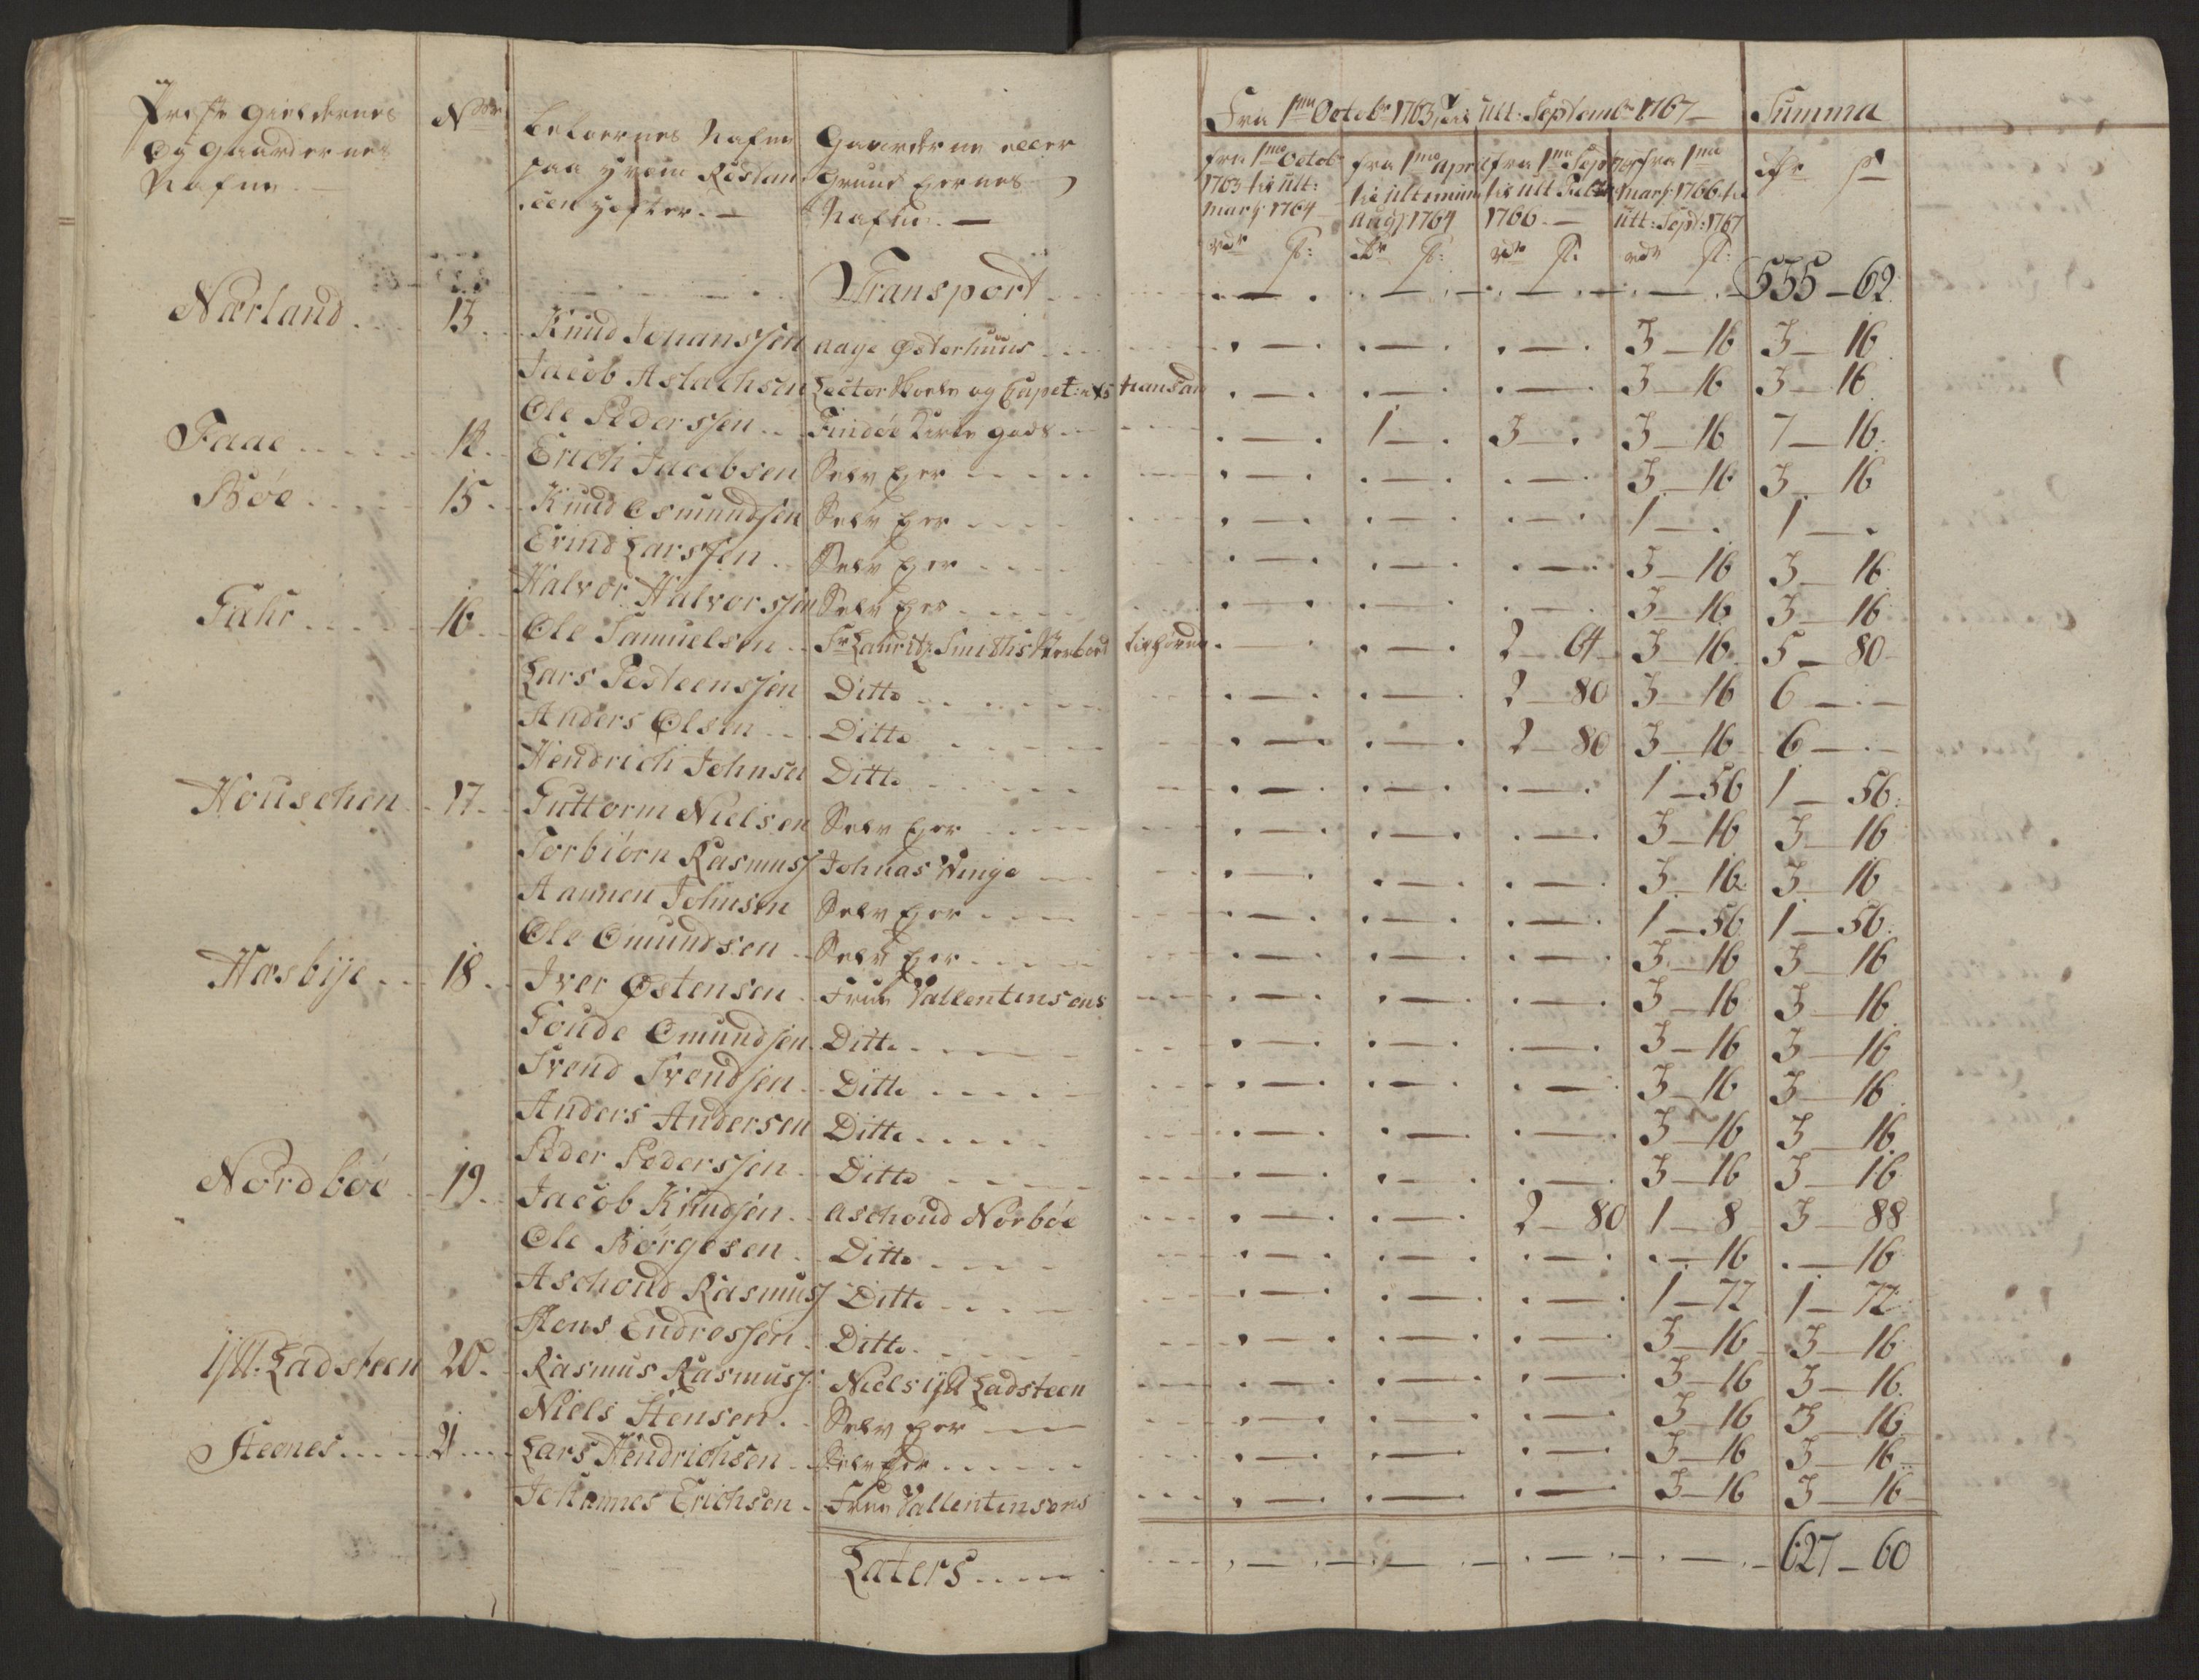 Præste Gieldernes
Og Gaardernes
Nafne.
Nor
Leboernes Nafne
paa hvem Restan-
cen hefter.
Gaarderne eller
Grund Eiernes
Nafne.
Fra 1ma Octob: 1763, til ult: Septemb: 1767
Summa
fra 1mo Octob:
1763 til ult:
Marty 1764
fra 1mo April
til ultimum
Aug: 1764
fra 1ma Sept: 1764
til ult Febr
1766
fra 1ma
Marty 1766 til
Ult: Sept: 1767
rdr ſ:
rdr ſ:
rdr ſ:
rdr ſ:
rdr ſ
Transport 555 - 62
Nærland 13. Knud Johanssen Aage Østerhuus 3 - 16 3 - 16
Jacob Aslachsen Lector Skole og Capet: Christiansand 3 - 16 3 - 16
Ole Pederssen Findöe Kirke Gods 1 - . 3 - . 3 - 16 7 - 16
Faae 14. Erich Jacobsen Selv Eyer 3 - 16 3 - 16
Böe 15. Knud Osmundsen Selv Eyer 1 - . 1 - .
Erind Larssen Selv Eyer 3 - 16 3 - 16
Halvor Halvorssen Selv Eyer 3 - 16 3 - 16
Fahr 16. Ole Samuelsen Sr Lauritz Smiths Sterboe tilhörende 2 - 64 3 - 16 5 - 80
Lars Pedteenssen Ditto 2 - 80 3 - 16 6 - . -
Anders Olsen Ditto 2 - 80 3 - 16 6 - . -
Hendrich Johnsen Ditto 1 - 56 1 - 56
Houschen 17. Guttorm Nielsen Selv Eyer 3 - 16 3 - 16
Torbiörn Rasmuss Johnas Winge 3 - 16 3 - 16
Aamnen Johnsen Selv Eyer 1 - 56 1 - 56
Ole Omundsen Selv Eyer 3 - 16 3 - 16
Hæsbije 18. Iver Østensen Frue Vallentinsens 3 - 16 3 - 16
Goude Omundsen Ditto 3 - 16 3 - 16
Svend Svendsen Ditto 3 - 16 3 - 16
Anders Andersen Ditto 3 - 16 3 - 16
Peder Pederssen Ditto 3 - 16 3 - 16
Nordböe 19. Jacob Knudsen Aschoud Norböe 2 - 80 1 - 8 3 - 88
Ole Börgesen Ditto . - 16 . - 16
Aschoud Rasmuss Ditto 1 - 72 1 - 72
Hans Endressen Ditto 3 - 16 3 - 16
Ytt. Ladsteen 20. Rasmus Rasmuss: Niels Ytt Ladsteen 3 - 16 3 - 16
Niels Stensen Selv Eyer 3 - 16 3 - 16
Steenes 21 Lars Hendrichsen Selv Eyer 3 - 16 3 - 16
Johannes Erichsen Frue Vallentinsens 3 - 16 3 - 16
Laters 627 - 60